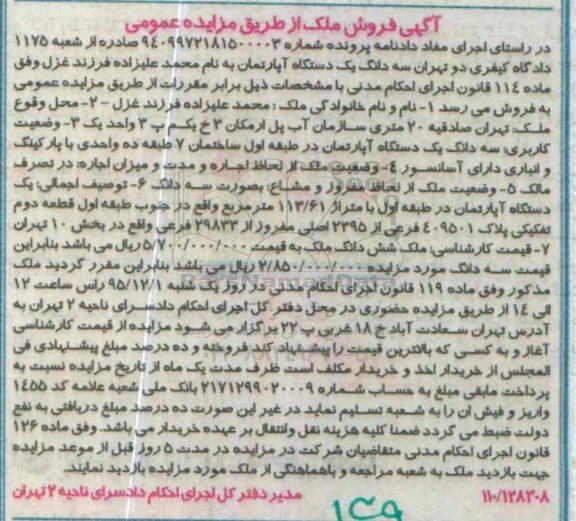 آگهی فروش ملک از طریق مزایده عمومی
در راستای اجرای مفاد دادنامه پرونده شماره ۹۴۰۹۹۷۲۱۸۱۵۰۰۰۰۳ صادره از شعبه ۱۱۷۵
دادگاه کیفری دو تهران سه دانگ یک دستگاه آپارتمان به نام محمد علیزاده فرزند غزل وفق
ماده ۱۱۴ قانون اجرای احکام مدنی با مشخصات ذیل برابر مقررات از طریق مزایده عمومی
به فروش می رسد ۱- نام و نام خانوادگی ملک : محمد علیزاده فرزند غزل – ۲- محل وقوع
ملک: تهران صادقیه ۲۰ متری سازمان آب پل ارمکان ۳ خ یکم پ ۳ واحد یک ۳- وضعیت
کاربری: سه دانگ یک دستگاه آپارتمان در طبقه اول ساختمان ۷ طبقه ده واحدی با پارکینگ
و انباری دارای آسانسور ۴- وضعیت ملک از لحاظ اجاره و مدت و میزان اجاره: در تصرف
مالک ۵- وضعیت ملک از لحاظ مفروز و مشاع: بصورت سه دانگ ۶- توصیف اجمالی: یک
دستگاه آپارتمان در طبقه اول با متراژ ۱۱۳/۶۱ مترمربع واقع در جنوب طبقه اول قطعه دوم
تفکیکی پلاک ۴۰۹۵۰۱ فرعی از ۲۳۹۵ اصلی مفروز از ۲۹۸۳۳ فرعی واقع در بخش ۱۰ تهران
۷- قیمت کارشناسی: ملک شش دانگ ملک به قیمت ۵/۷۰۰/۰۰۰/۰۰۰ ریال می باشد بنابراین
قیمت سه دانگ مورد مزایده ۲/۸۵۰/۰۰۰/۰۰۰ ریال می باشد بنابراین مقرر گردید ملک
مذکور وفق ماده ۱۱۹ قانون اجرای احکام مدنی در روز یک شنبه ۹۵/۱۲/۱ راس ساعت ۱۲
الی ۱۴ از طریق مزایده حضوری در محل دفتر کل اجرای احکام دادسرای ناحیه ۲ تهران به
آدرس تهران سعادت آباد خ ۱۸ غربی پ ۲۲ برگزار می شود مزایده از قیمت کارشناسی
آغاز و به کسی که بالاترین قیمت را پیشنهاد کند فروخته و ده درصد مبلغ پیشنهادی فی
المجلس از خریدار اخذ و خریدار مکلف است ظرف مدت یک ماه از تاریخ مزایده نسبت به
پرداخت مابقی مبلغ به حساب شماره ۲۱۷۱۲۹۹۰۲۰۰۰۹ بانک ملی شعبه علامه کد ۱۴۵۵
واریز و فیش ان را به شعبه تسلیم نماید در غیر این صورت ده درصد مبلغ دریافتی به نفع
دولت ضبط می گردد ضمنا کلیه هزینه نقل وانتقال بر عهده خریدار می باشد. وفق ماده ۱۲۶
قانون اجرای احکام مدنی متقاضیان شرکت در مزایده در مدت ۵ روز قبل از موعد مزایده
جهت بازدید ملک به شعبه مراجعه و باهماهنگی از ملک مورد مزایده بازدید نمایند.
۱۱۰/۱۲۸۳۰۸ مدیر دفتر کل اجرای احکام دادسرای ناحیه ۲ تهران